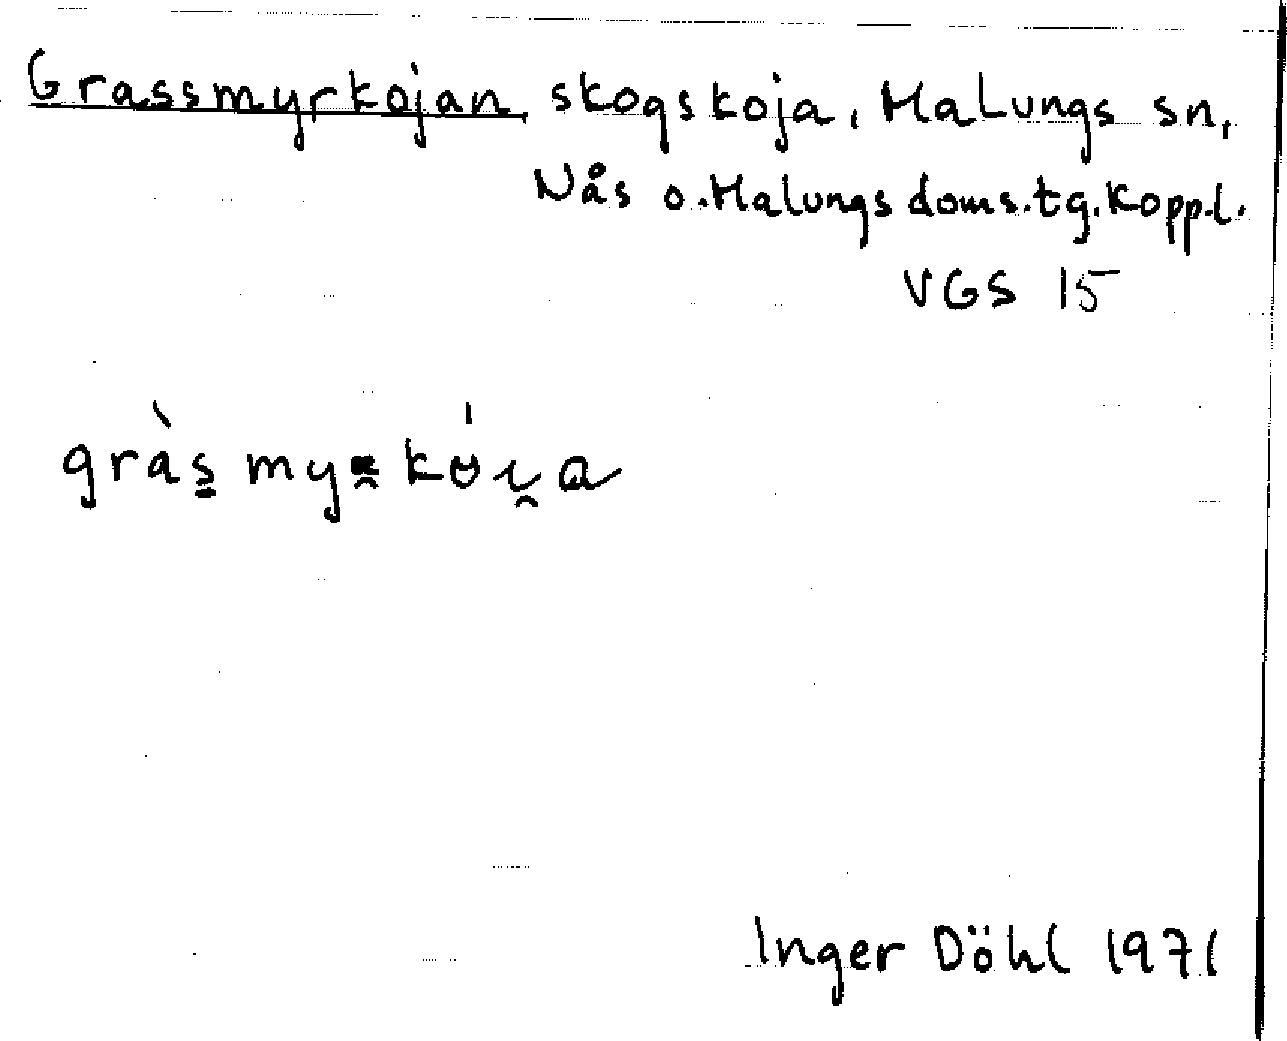 Grassmyrkojan, skogskoja, Malungs sn,
Nås o. Malungs doms.tg. Kopp.l.
VGS 15
Inger Döhl 1971